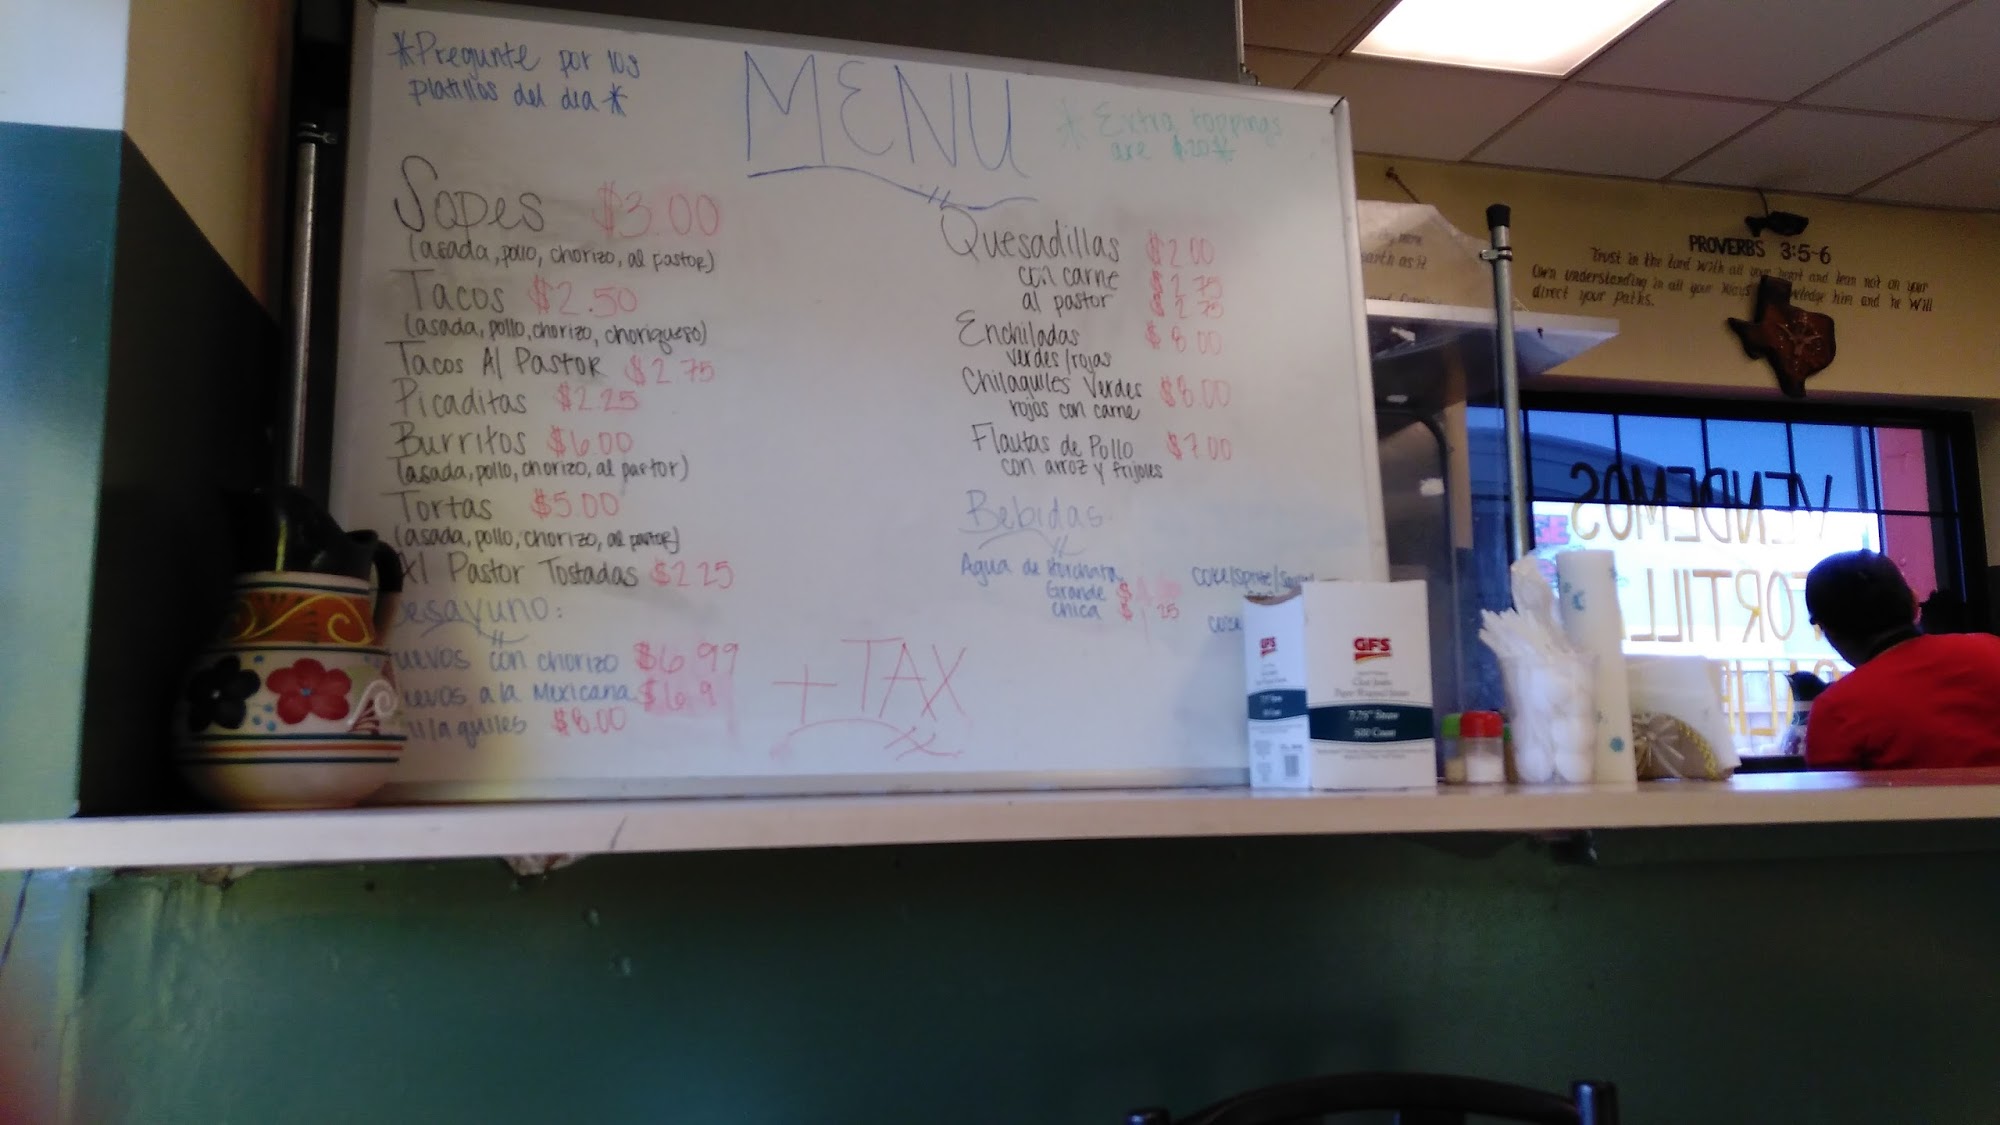 *Pregunte por los
platillos del dia *
MENU
* Extra toppings
are $.20 *
Sopes $3.00
(asada, pollo, chorizo, al pastor)
Tacos $2.50
(asada, pollo, chorizo, choriqueso)
Tacos Al Pastor $2 75
Picaditas $2.25
Burritos $6.00
(asada, pollo, chorizo, al pastor)
Tortas $5.00
(asada, pollo, chorizo, al pastor)
Al Pastor Tostadas $2 25
Desayuno:
uevos con chorizo $6 99
uevos a la Mexicana $6 9
ilaquiles $8.00
Quesadillas $2 00
con carne $2 75
al pastor $2 75
Enchiladas $8 00
verdes/rojas
Chilaquiles Verdes $8.00
rojos con carne
Flautas de Pollo $7.00
con arroz y frijoles
Bebidas
Agua de Horchata
Grande $
chica $1 25
coke/sprite/
+ TAX
GFS
GFS
7.75" Straw
500 Count
PROVERBS 3:5-6
Trust in the Lord with all your heart and lean not on your
Own understanding in all your ways him and he will
direct your paths.
earth as it
VENDEMOS
TORTILL